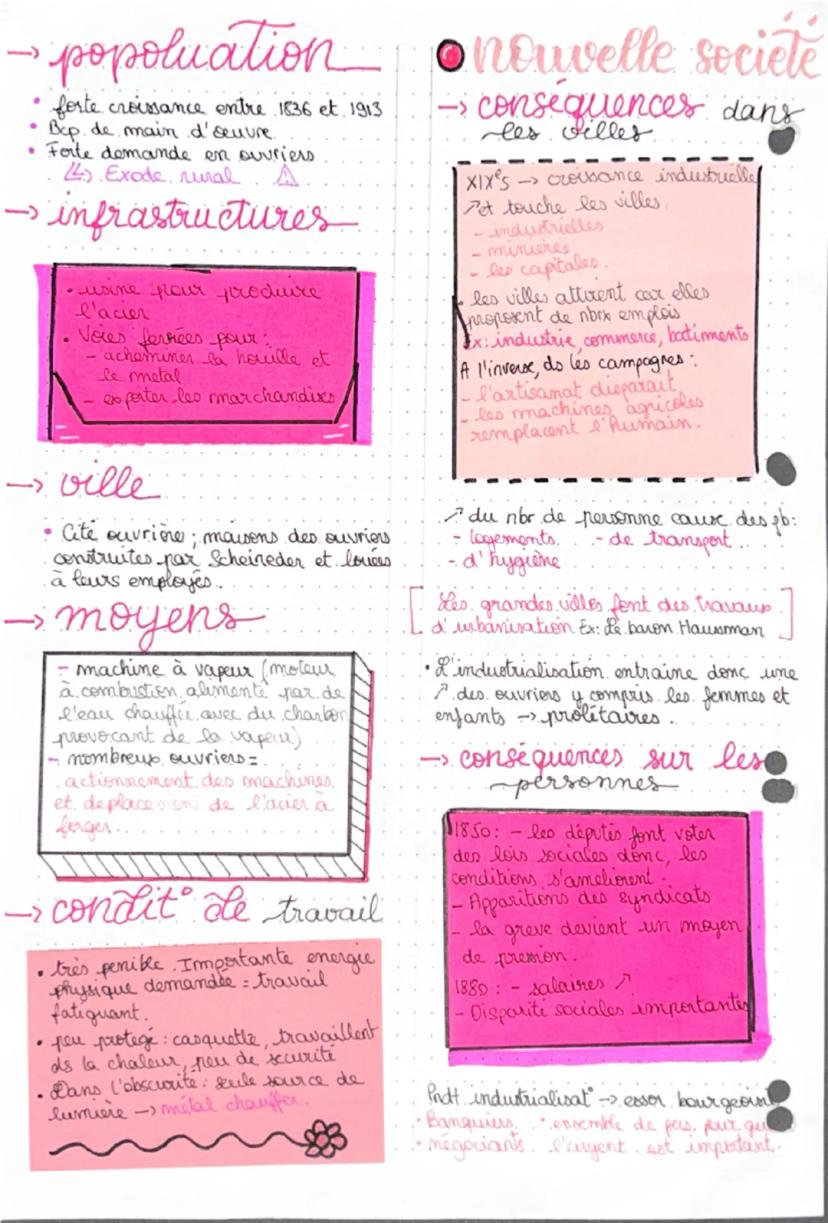 → popoluation
• forte croissance entre 1836 et 1913
• Bcp de main d'œuvre
• Forte demande en ouvriers
↳ Exode rural ⚠
→ infrastructures
• usine pour produire
l'acier
• Voies ferrées pour :
- acheminer la houille et
le metal
- exporter les marchandises
→ ville
• Cité ouvrière ; maisons des ouvriers
construites par Scheineder et louées
à leurs employés.
→ moyens
- machine à vapeur (moteur
à combustion alimenté par de
l'eau chauffée avec du charbon
provocant de la vapeur)
- nombreux ouvriers =
actionnement des machines
et deplacement de l'acier à
forger.
→ condit° de travail
• très penible. Importante energie
physique demandée = travail
fatiguant.
• peu protegé : casquette, travaillent
ds la chaleur, peu de securité
• Dans l'obscurité : seule source de
lumière → métal chauffer.
nouvelle société
→ conséquences dans
les villes
XIXes → croissance industrielle
↗ et touche les villes :
- industrielles
- minières
- les capitales.
• les villes attirent car elles
proposent de nbrx emplois
Ex: industrie, commerce, batiments
A l'inverse, ds les campagnes :
- l'artisanat disparait
- les machines agricoles
remplacent l'humain.
↗ du nbr de personne cause des pb:
- logements - de transport
- d'hygiène
[Les grandes villes font des travaux
d'urbanisation Ex: Le baron Hausman]
• L'industrialisation entraine donc une
↗ des ouvriers y compris les femmes et
enfants → prolétaires.
→ conséquences sur les
personnes
1850 : - les députés font voter
des lois sociales donc, les
conditions s'ameliorent.
- Apparitions des syndicats
- la greve devient un moyen
de pression.
1880 : - salaires ↗
- Disparité sociales importantes
Pndt industrialisat° → essor bourgeoisi
• Banquiers • ensemble de pers. pour qui
• négociants l'argent est important.